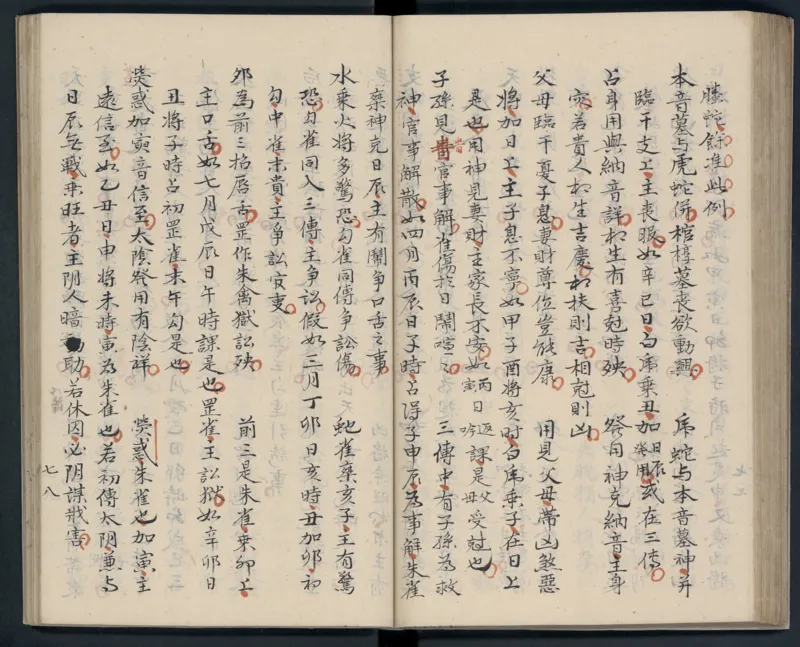 螣蛇餘准此例
本音墓与虎蛇併棺椁墓丧欲動興 虎蛇与本音墓神并
臨干支上主丧服如辛巳日白虎乗丑加日辰發用或在三傳
占身用與納音詳相生有喜尅時殃 發用神克納音主身
灾若貴人相生吉慶相扶則吉相尅則凶
父母臨干憂子息妻財尊位豈能康 用見父母帯凶煞悪
将加日上主子息不寧如甲子酉将亥时白虎乗子在日上
是也用神見妻財主家長不安如丙寅日返吟課是父母受尅也
子孫見官事解雀傷於日鬧 三傳中有子孫為救
神官事解散如四月丙辰日子時占得子申辰為事解朱雀
乗神克日辰主有鬧争口舌之事
水乗火将多驚恐勾雀同傳争訟傷 蛇雀乗亥子主有驚
恐勾雀同入三傳主争訟假如三月丁卯日亥時丑加卯初
勾中雀末貴主争訟官吏
卯為前三招唇舌罡作朱禽獄訟殃 前三是朱雀乗卯上
主口舌如七月戊辰日午時課是也罡雀主訟獄如辛卯日
丑将子時占初罡雀末午勾是也
熒惑加寅音信至太陰發用有陰祥 熒惑朱雀也加寅主
遠信至如乙丑日申将未時寅為朱雀也若初傳太阴兼与
日辰無戰乗旺者主阴人暗助若休囚必阴謀戕害
七八